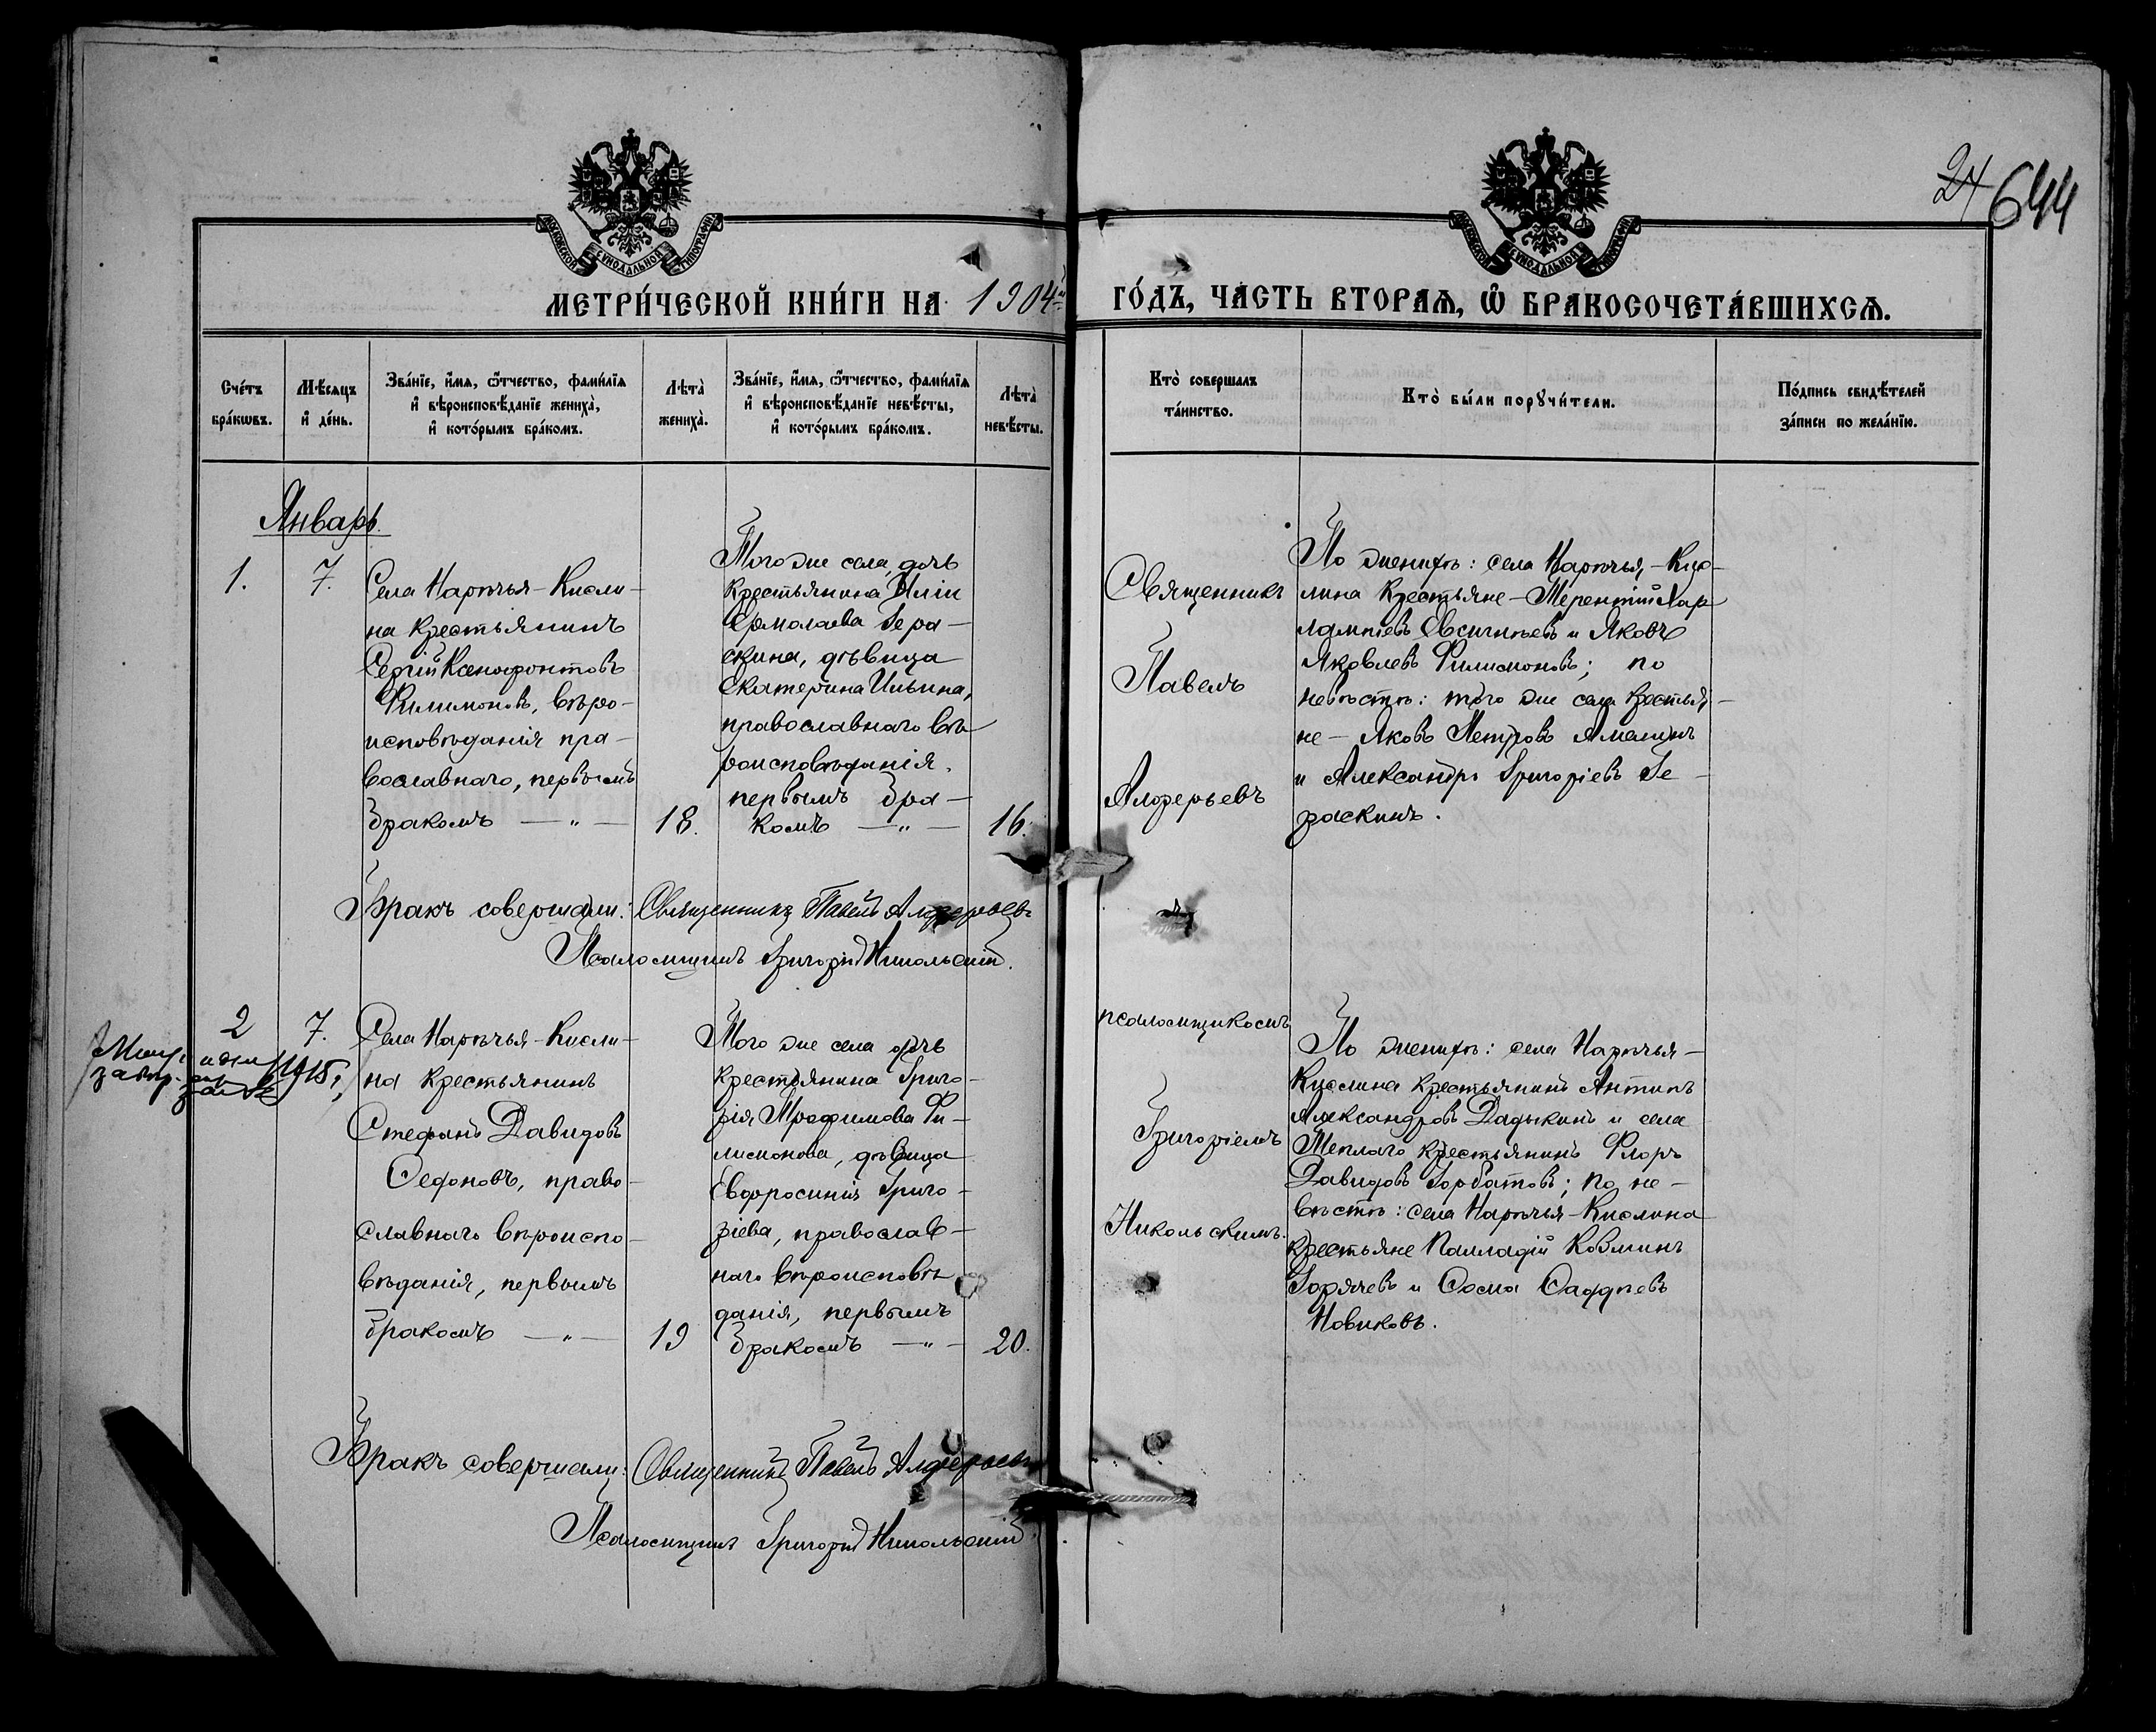 24 644
МОСКОВСКОЙ СѴНОДАЛЬНОЙ ТИПОГРАФІИ
МОСКОВСКОЙ СѴНОДАЛЬНОЙ ТИПОГРАФІИ
МЕТРИ́ЧЕСКОЙ КНИ́ГИ НА 1904й ГО́ДЪ, ЧА́СТЬ ВТОРАѦ, Ѿ БРАКОСОЧЕТА́ВШИХСѦ.
Сче́тъ
бра́кѡвъ.
Мѣ́сяцъ
и҆ де́нь.
Зва́нїе, и҆́мѧ, ѻ҆́тчество, фами́лїѧ
и҆ вѣроисповѣ́данїе жениха̀,
и҆ кото́рымъ бра́комъ.
Лѣта̀
жениха̀.
Зва́нїе, и҆́мѧ, ѻ҆́тчество, фами́лїѧ
и҆ вѣроисповѣ́данїе невѣ́сты,
и҆ кото́рымъ бра́комъ.
Лѣта̀
невѣ́сты.
Кто̀ совершалъ
та́инство.
Кто̀ бы́ли порꙋчи́тели.
По́дпись свидѣ́телей
за́писи по жела́нїю.
Январь.
1.
7.
Села Нарѣчья-Кисли-
на крестьянинъ
Сергій Ксенофонтовъ
Филимоновъ, вѣро-
исповѣданія пра-
вославнаго, первымъ
бракомъ — " —
18.
Того же села, дочь
крестьянина Иліи
Ермолаева Гера-
скина, дѣвица
Екатерина Ильина,
православнаго вѣ
роисповѣданія,
первымъ бра-
комъ — " —
16.
Священникъ
Павелъ
Алферьевъ
По женихѣ: села Нарѣчья-Кис-
лина крестьяне - Терентій Хар
лампіевъ Евсигнѣевъ и Яковъ
Яковлевъ Филимоновъ; по
невѣстѣ: того же села крестья-
не - Яковъ Петровъ Амелинъ
и Александръ Григоріевъ Ге-
раскинъ.
Бракъ совершали: Священникъ Павелъ Алферьевъ
Псаломщикъ Григорій Никольскій.
2
7.
1915 г.
Села Нарѣчья-Кисли-
на крестьянинъ
Стефанъ Давидовъ
Сафоновъ, право-
славнаго вѣроиспо-
вѣданія, первымъ
бракомъ — " —
19
Того же села дочь
крестьянина Григо-
рія Трофимова Фи-
лимонова, дѣвица
Евфросинія Григо-
ріева, православ-
наго вѣроисповѣ
данія, первымъ
бракомъ — " —
20.
псаломщикомъ
Григоріемъ
Никольскимъ.
По женихѣ: села Нарѣчья-
Кислина крестьянинъ Антипъ
Александровъ Дадыкинъ и села
Теплаго крестьянинъ Флоръ
Давидовъ Горбатовъ; по не-
вѣстѣ: села Нарѣчья-Кислина
крестьяне Палладій Козминъ
Горячевъ и Сосма
Новиковъ.
Бракъ совершали: Священникъ Павелъ Алферьевъ
Псаломщикъ Григорій Никольскій.